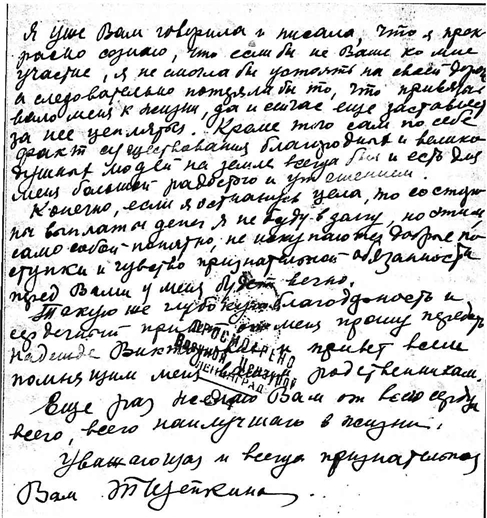 Я уже Вам говорила и писала, что я прек-
расно сознаю, что если бы не Ваше ко мне
участие, я не смогла бы устоять на своей дороге
а следовательно потеряла бы то, что привязы-
вало меня к жизни, да и сейчас еще заставляет
за нее цепляться. Кроме того сам по себе
факт существования благородных и велико-
душных людей на земле всегда был и есть для
меня большой радостью и утешением.
Конечно, если я останусь цела, то со сторо-
ны выплаты денег я не буду в долгу, но этим
само собой понятно, не искупаются добрые по-
ступки и чувство признательной обязанности
перед Вами у меня будет вечно.
Такую же глубокую благодарность и
сердечный привет от меня прошу передать
Надежде и привет всем
помнящим меня родственникам.
Еще раз желаю Вам от всего сердца
всего, всего наилучшего в жизни.
Уважающая и всегда признательная
Вам Т Щепкина
ПРОСМОТРЕНО
Военной Цензурой
ЛЕНИНГРАД